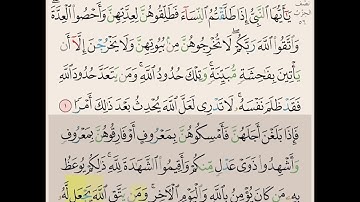 يَٰٓأَيُّهَا ٱلنَّبِىُّ إِذَا طَلَّقْتُمُ ٱلنِّسَآءَ فَطَلِّقُوهُنَّ لِعِدَّتِهِنَّ وَأَحْصُوا۟ ٱلْعِدَّةَ
وَٱتَّقُوا۟ ٱللَّهَ رَبَّكُمْ ۖ لَا تُخْرِجُوهُنَّ مِنۢ بُيُوتِهِنَّ وَلَا يَخْرُجْنَ إِلَّآ أَن
يَأْتِينَ بِفَٰحِشَةٍ مُّبَيِّنَةٍ ۚ وَتِلْكَ حُدُودُ ٱللَّهِ ۚ وَمَن يَتَعَدَّ حُدُودَ ٱللَّهِ
فَقَدْ ظَلَمَ نَفْسَهُۥ ۚ لَا تَدْرِى لَعَلَّ ٱللَّهَ يُحْدِثُ بَعْدَ ذَٰلِكَ أَمْرًا ١
فَإِذَا بَلَغْنَ أَجَلَهُنَّ فَأَمْسِكُوهُنَّ بِمَعْرُوفٍ أَوْ فَارِقُوهُنَّ بِمَعْرُوفٍ
وَأَشْهِدُوا۟ ذَوَىْ عَدْلٍ مِّنكُمْ وَأَقِيمُوا۟ ٱلشَّهَٰدَةَ لِلَّهِ ۚ ذَٰلِكُمْ يُوعَظُ
بِهِۦ مَن كَانَ يُؤْمِنُ بِٱللَّهِ وَٱلْيَوْمِ ٱلْءَاخِرِ ۚ وَمَن يَتَّقِ ٱللَّهَ يَجْعَل لَّهُۥ